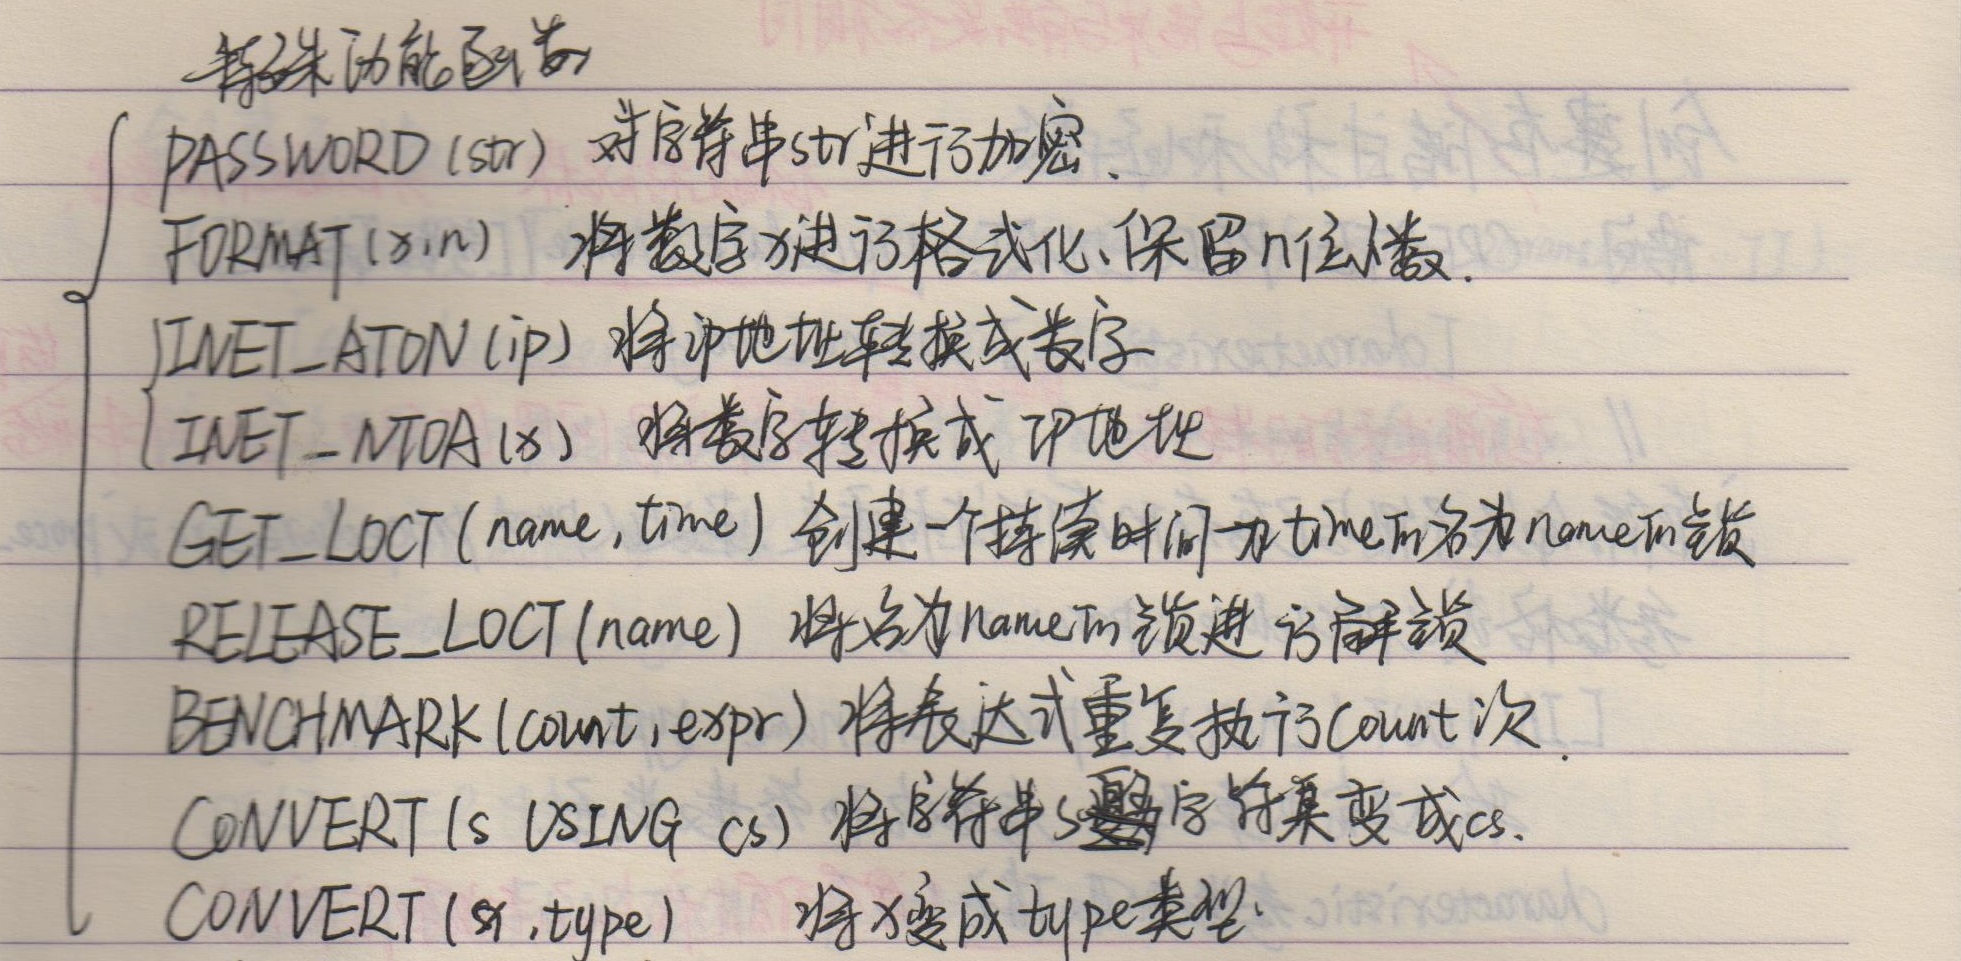 特殊功能函数
PASSWORD(str) 对字符串str进行加密.
FORMAT(x,n) 将数字x进行格式化、保留n位小数.
INET_ATON(ip) 将IP地址转换成数字
INET_NTOA(x) 将数字转换成 IP地址
GET_LOCT(name,time) 创建一个持续时间为time的名为name的锁
RELEASE_LOCT(name) 将名为name的锁进行解锁
BENCHMARK(count,expr) 将表达式重复执行count次.
CONVERT(s USING cs) 将字符串s字符集变成cs.
CONVERT(x,type) 将x变成type类型.